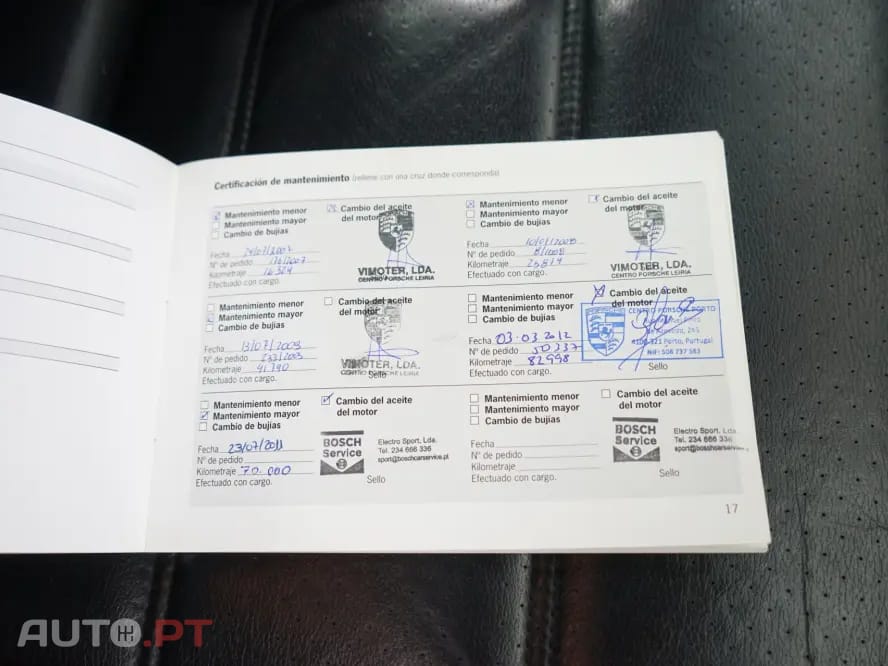 Certificación de mantenimiento (rellene con una cruz donde corresponda)
Mantenimiento menor
Mantenimiento mayor
Cambio de bujias
Cambio del aceite
del motor
Fecha
Nº de pedido
Kilometraje 16324
Efectuado con cargo.
VIMOTER, LDA.
CENTRO PORSCHE LEIRIA
Mantenimiento menor
Mantenimiento mayor
Cambio de bujias
Cambio del aceite
del motor
Fecha
Nº de pedido
Kilometraje
Efectuado con cargo.
VIMOTER, LDA.
CENTRO PORSCHE LEIRIA
Mantenimiento menor
Mantenimiento mayor
Cambio de bujias
Cambio del aceite
del motor
Fecha
Nº de pedido
Kilometraje
Efectuado con cargo.
VIMOTER, LDA.
CENTRO PORSCHE LEIRIA
Sello
Mantenimiento menor
Mantenimiento mayor
Cambio de bujias
Cambio del aceite
del motor
Fecha 03.03 2012
Nº de pedido
Kilometraje 82998
Efectuado con cargo.
CENTRO PORSCHE PORTO
4100-321 Porto, Portugal
NIF: 508 737 583
Sello
Mantenimiento menor
Mantenimiento mayor
Cambio de bujias
Cambio del aceite
del motor
Fecha 23/07/2011
Nº de pedido
Kilometraje 70.000
Efectuado con cargo.
BOSCH
Service
Electro Sport, Lda.
Tel. 234 666 336
sport@boschcarservice.pt
Sello
Mantenimiento menor
Mantenimiento mayor
Cambio de bujias
Cambio del aceite
del motor
Fecha
Nº de pedido
Kilometraje
Efectuado con cargo.
BOSCH
Service
Electro Sport, Lda.
Tel. 234 666 336
sport@boschcarservice.pt
Sello
17
AUTO.PT